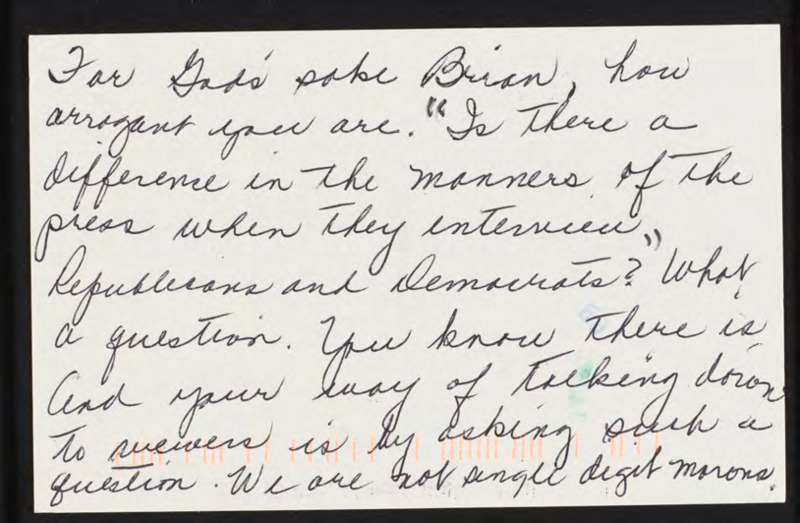 For God's sake Brian, how
arrogant you are. "Is there a
difference in the manners of the
press when they interview
Republicans and Democrats?" What
a question. You know there is
and your way of talking down
to viewers is by asking such a
question. We are not single digit morons.